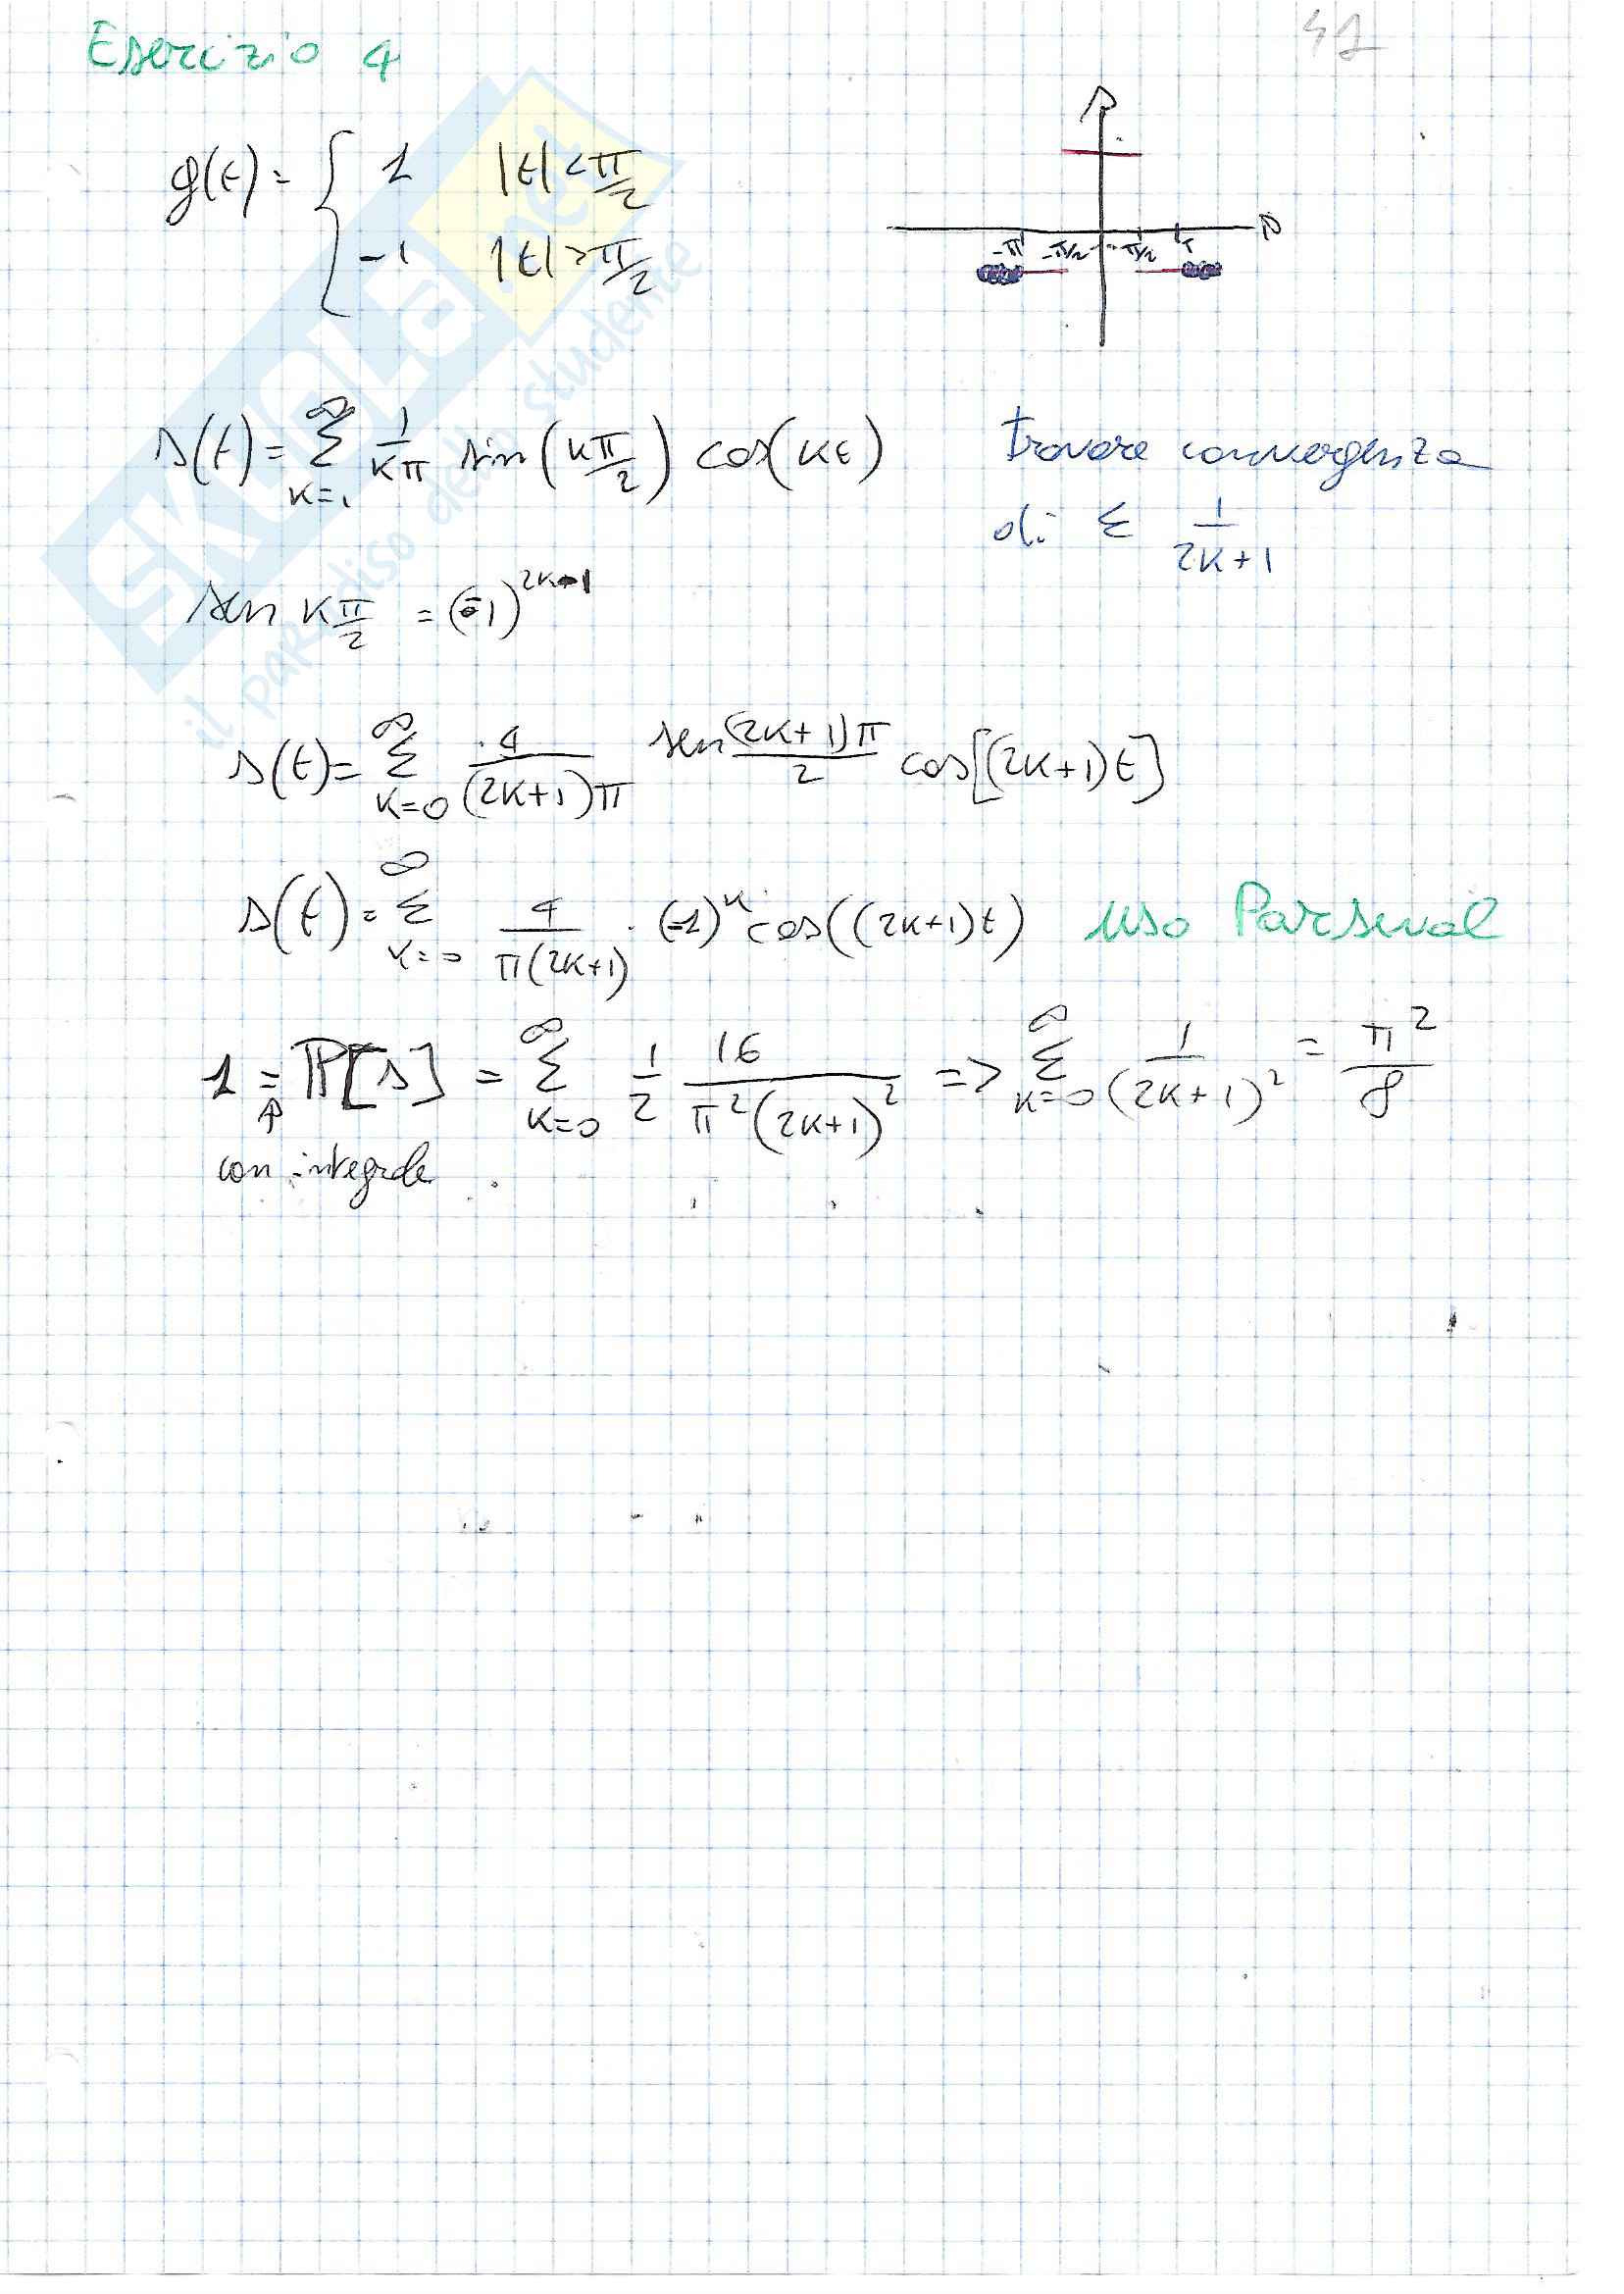 Esercizio 4
41
g(t) = { 1 |t| < π/2
-1 |t| > π/2
-π -π/2 π/2 π
s(t) = Σ_{k=1}^{∞} 1/(kπ) sin(kπ/2) cos(kt)
trovare convergenza
di Σ 1/(2k+1)
sen kπ/2 = (-1)^{2k-1}
s(t) = Σ_{k=0}^{∞} 4/((2k+1)π) sen (2k+1)π/2 cos[(2k+1)t]
s(t) = Σ_{k=0}^{∞} 4/(π(2k+1)) · (-1)^k cos((2k+1)t) uso Parseval
1 = P[s] = Σ_{k=0}^{∞} 1/2 16/(π²(2k+1)²) => Σ_{k=0}^{∞} 1/(2k+1)² = π²/8
con integrale
SKUOLA.net
il paradiso dello studente